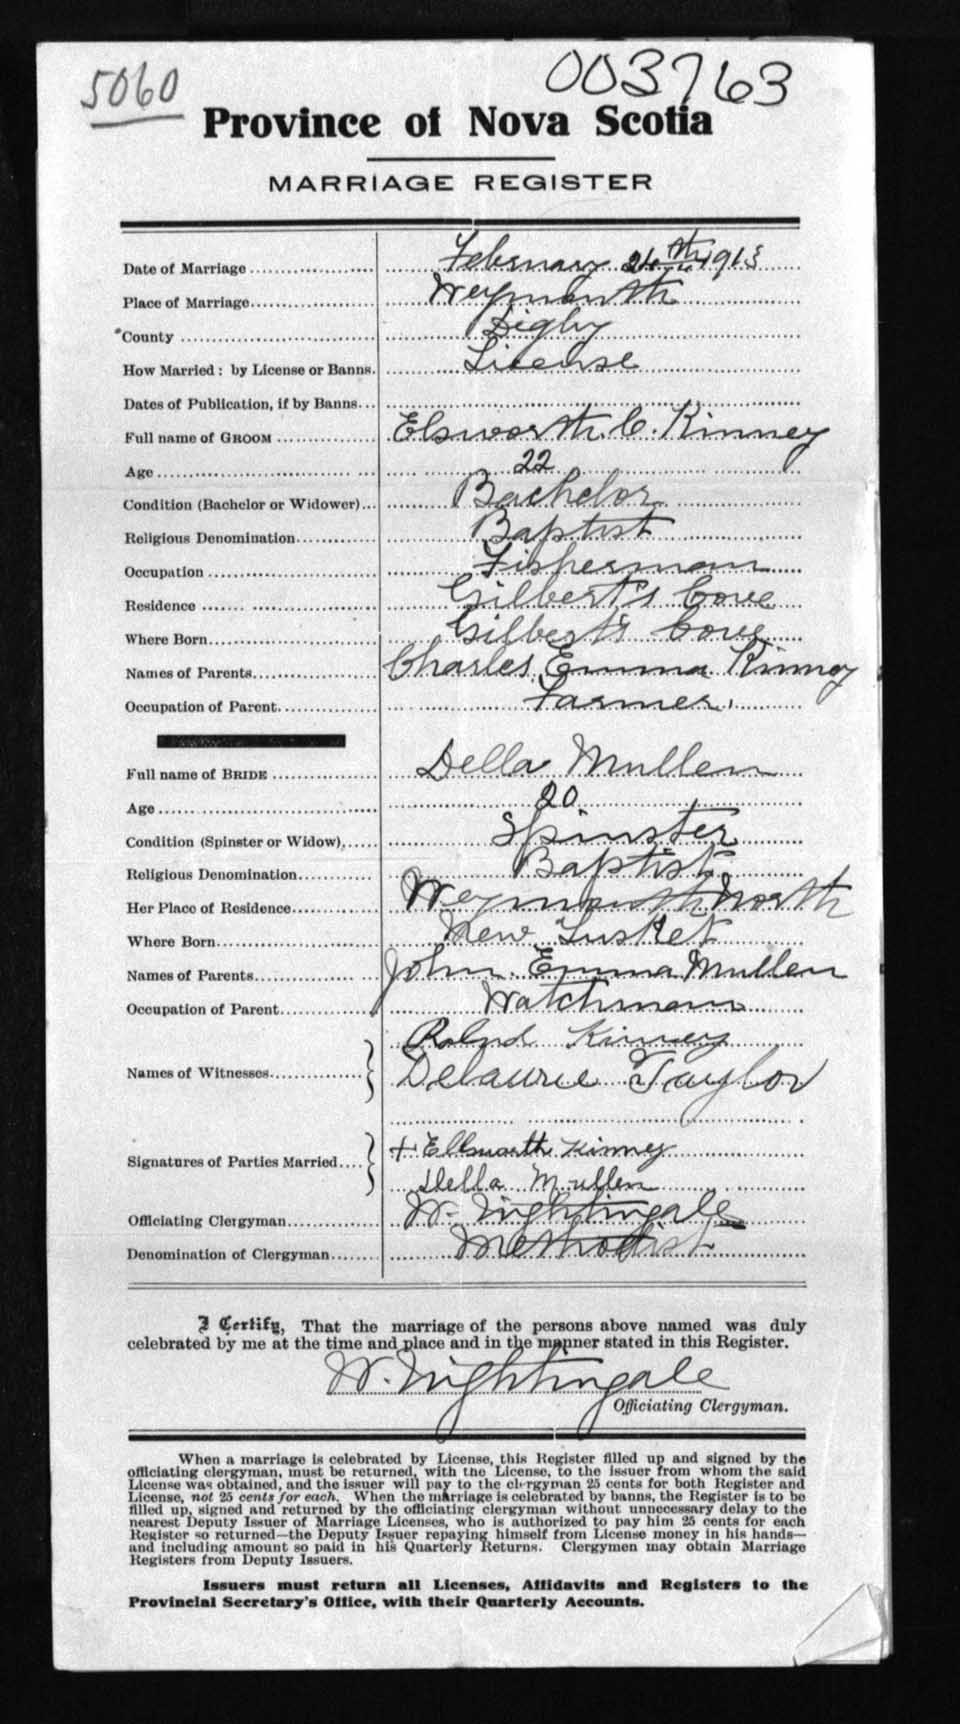 5060
003763
Province of Nova Scotia
MARRIAGE REGISTER
Date of Marriage February 24th 1913
Place of Marriage Weymouth
County Digby
How Married: by License or Banns. License
Dates of Publication, if by Banns
Full name of GROOM Elsworth. C. Kinney
Age 22
Condition (Bachelor or Widower) Bachelor
Religious Denomination Baptist
Occupation Fisherman
Residence Gilbert's Cove
Where Born Gilbert's Cove
Names of Parents Charles. Emma Kinney
Occupation of Parent Farmer.
Full name of BRIDE Della Mullen
Age 20
Condition (Spinster or Widow) Spinster
Religious Denomination Baptist
Her Place of Residence Weymouth North
Where Born New Tusket
Names of Parents John. Emma Mullen
Occupation of Parent Watchman
Kinney
Names of Witnesses Delaurie Taylor
+ Ellsworth Kinney
Signatures of Parties Married
Della Mullen
Officiating Clergyman W. Nightingale
Denomination of Clergyman Methodist
I Certify, That the marriage of the persons above named was duly
celebrated by me at the time and place and in the manner stated in this Register.
W. Nightingale
Officiating Clergyman.
When a marriage is celebrated by License, this Register filled up and signed by the
officiating clergyman, must be returned, with the License, to the issuer from whom the said
License was obtained, and the issuer will pay to the clergyman 25 cents for both Register and
License, not 25 cents for each. When the marriage is celebrated by banns, the Register is to be
filled up, signed and returned by the officiating clergyman without unnecessary delay to the
nearest Deputy Issuer of Marriage Licenses, who is authorized to pay him 25 cents for each
Register so returned—the Deputy Issuer repaying himself from License money in his hands—
and including amount so paid in his Quarterly Returns. Clergymen may obtain Marriage
Registers from Deputy Issuers.
Issuers must return all Licenses, Affidavits and Registers to the
Provincial Secretary's Office, with their Quarterly Accounts.